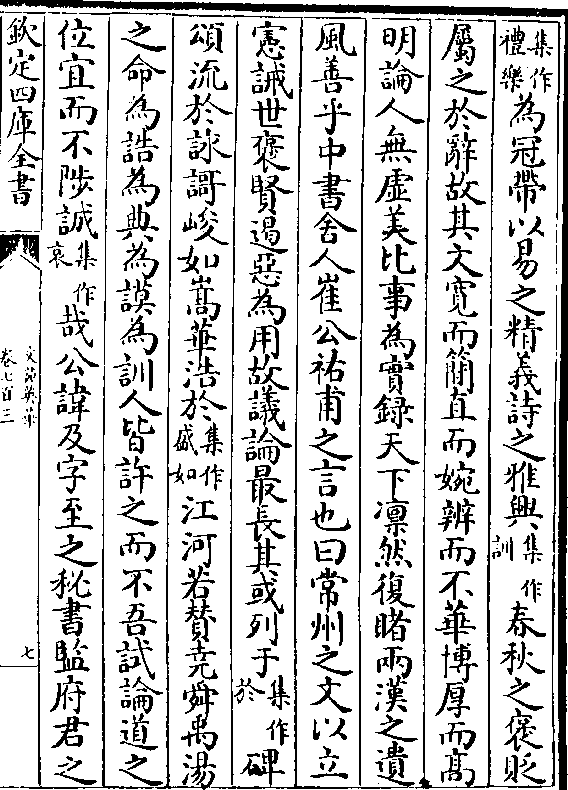 集作禮樂為冠帶以易之精義詩之雅興集作訓春秋之褒貶
屬之於辭故其文寛而簡直而婉辨而不華博厚而髙
明論人無虚美比事為實録天下凛然復睹兩漢之遺
風善乎中書舍人崔公祐甫之言也曰常州之文以立
憲誡世褒賢遏惡為用故議論最長其或列于集作於碑
頌流於詠謌峻如嵩華浩於集作盛如江河若賛堯舜禹湯
之命為誥為典為謨為訓人皆許之而不吾試論道之
位宜而不陟誠集作哀哉公諱及字至之秘書監府君之
欽定四庫全書
文苑英華
卷七百三
七